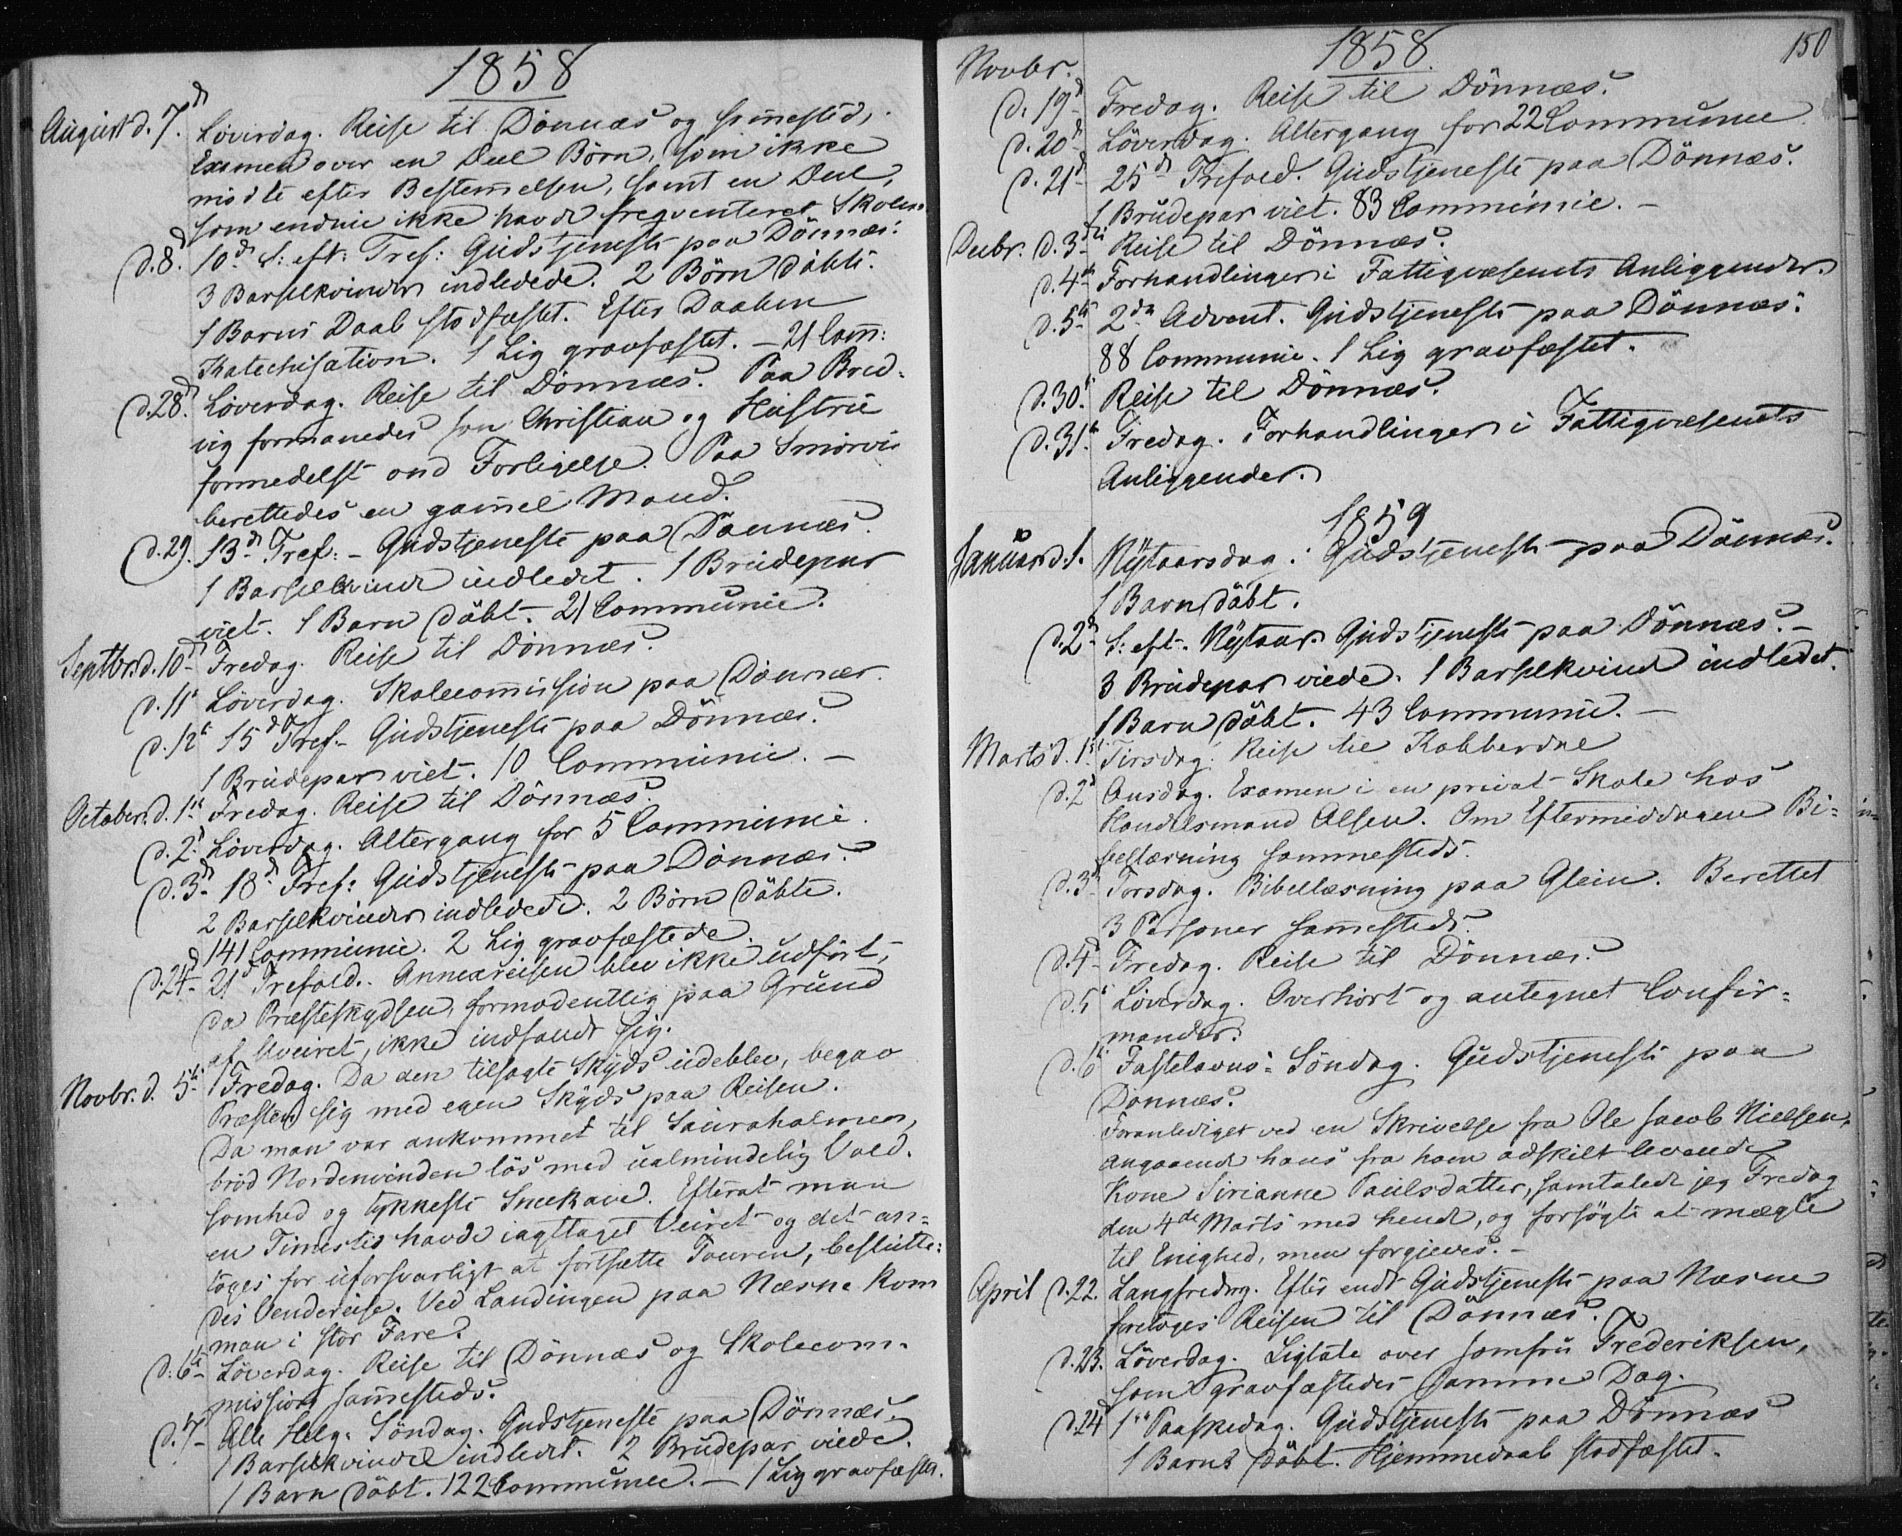 1858
August d. 7d Löverdag. Reise til Dönnæs og sammested,
Examen over en Deel Börn, som ikke
mödte efter Bestemelsen, samt en Deel,
som endnu ikke havde freqventeret Skolen.
d. 8d 10d S: eft: Tref: Gudstjeneste paa Dönnæs.
3 Barselkvinder indledede. 2 Börn döbte.
1 Barns Daab stadfæstet. Efter Daaben
Katechisation. 1 Lig gravfæstet. – 21 Com:
d. 28d Löverdag. Reise til Dönnæs. Paa Bred-
vig formanedes Christian og Hustrue
formedelst ond Forligelse. Paa Smörvis
berettedes en gamel Mand.
d. 29. 13d Tref: – Gudstjeneste paa Dönnæs
1 Barselkvinde indledet. 1 Brudepar
viet. 1 Barn döbt. 21 Communic.
Septbr d. 10d Fredag. Reise til Dönnæs.
d. 11t Löverdag. Skolecommission paa Dönnæs.
d. 12t 15d Tref. Gudstjeneste paa Dönnæs.
1 Brudepar viet. 10 Communic. –
October d. 1st Fredag. Reise til Dönnæs.
d. 2d Löverdag. Altergang for 5 Communic.
d. 3d 18d Tref: Gudstjeneste paa Dönnæs.
2 Barselkvinder indledede. 2 Börn döbte.
141 Communic. 2 Lig gravfæstede
d. 24d 21d Trefold. Annexreisen blev ikke udfört,
da Præsteskydsen, formodentlig paa Grund
af Uveiret, ikke indfandt sig.
Novbr. d. 5t Fredag. Da den tilsagte Skyds udeblev, begav
Præsten sig med egen Skyds paa Reisen.
Da man var ankommet til
bröd Nordenvinden lös med ualmindelig Vold-
somhed og tykkeste Sneekave. Efterat man
en Timestid havde iagttaget Veiret og det an-
toges for uforsvarligt at fortsætte Touren, beslutte-
des Vendereise. Ved Landingen paa Næsne kom
man i stor Fare.
d. 6t Löverdag. Reise til Dönnæs og Skolecom-
mission sammesteds.
d. 7 Alle Helg. Söndag. Gudstjeneste paa Dönnæs.
1 Barselkvinde indledet. 2 Brudepar viede.
1 Barn döbt. 122 Communic. – 1 Lig gravfæstet.
150
1858.
Novbr.
d. 19d Fredag. Reise til Dönnæs.
d. 20d Löverdag. Altergang for 22 Communic
d. 21d 25d Trefold. Gudstjeneste paa Dönnæs.
1 Brudepar viet. 83 Communic. –
Decbr. d. 3die Reise til Dönnæs.
d. 4de Forhandlinger i Fattigvæsenets Anliggender.
d. 5te 2den Advent. Gudstjeneste paa Dönnæs.
88 Communic. 1 Lig gravfæstet.
d. 30t Reise til Dönnæs.
d. 31t Fredag. Forhandlinger i Fattigvæsenets
Anliggender.
1859
Januar d. 1. Nytaarsdag. Gudstjeneste paa Dönnæs.
1 Barn döbt.
d. 2d S: eft. Nytaar Gudstjeneste paa Dönnæs. –
3 Brudepar viede. 1 Barselkvinde indledet.
1 Barn döbt. 43 Communic. –
Marts d. 1st Tirsdag. Reise til Kobberdal
d. 2d Onsdag. Examen i en privat Skole hos
Handelsmand Olsen. Om Eftermiddagen Bi-
bellæsning sammesteds.
d. 3d Torsdag. Bibellæsning paa Glein. Berettet
3 Personer sammesteds.
d. 4d Fredag. Reise til Dönnæs.
d. 5t Löverdag. Overhört og antegnet Confir-
mander.
d. 6t Fastelavns-Söndag. Gudstjeneste paa
Dönnæs.
Foranlediget ved en Skrivelse fra Ole Jacob Nielsen,
angaaende hans fra ham adskilt levende
Kone Sirianne Paulsdatter, samtalede jeg Fredag
den 4de Marts med hende, og forsögte at mægle
til Enighed, men forgjeves. –
April d. 22. Langfredag. Efter endt Gudstjeneste paa Næsne
foretoges Reisen til Dönnæs.
d. 23. Löverdag. Ligtale over Jomfru Frederiksen,
som gravfæstedes samme Dag.
d. 24 1ste Paaskedag. Gudstjeneste paa Dönnæs
1 Barns döbt. Hjemmedaab stadfæstet.